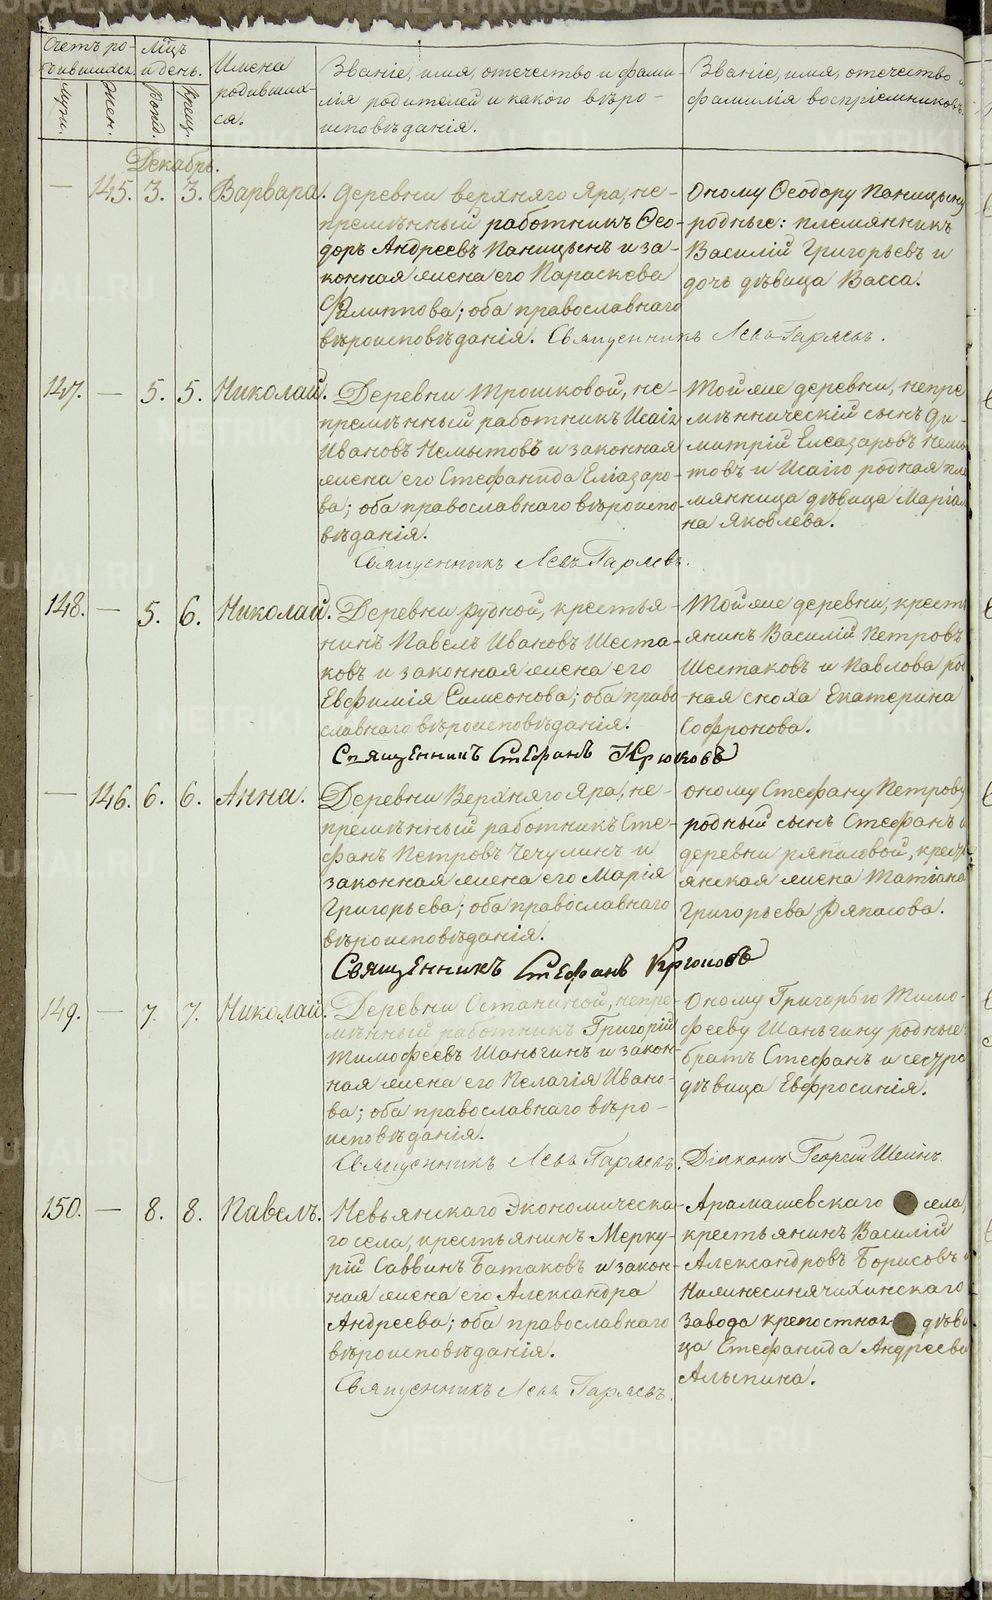 Счетъ ро-
дившихся.
Мѣсяцъ
и день.
Имена
родивших-
ся.
Званіе, имя, отечество и фами-
лія родителей и какого вѣро-
исповѣданія.
Званіе, имя, отечество и
фамилія воспріемниковъ.
Муж.
Жен.
Рожд.
Крещ.
Декабрь.
— 145. 3. 3. Варвара.
Деревни верхняго Яра, не-
премѣнный работникъ Ѳео-
доръ Андреевъ Паницынъ и за-
конная жена его Параскева
Филиппова; оба православнаго
вѣроисповѣданія. Священникъ Левъ Гаряевъ.
Оному Ѳеодору Паницыну
родные: племянникъ
Василій Григорьевъ и
дочь дѣвица Васса.
147. — 5. 5. Николай.
Деревни Трошковой, не-
премѣнный работникъ Исаія
Ивановъ Немытовъ и законная
жена его Стефанида Еліазаро-
ва; оба православнаго вѣроиспо-
вѣданія.
Священникъ Левъ Гаряевъ.
Той же деревни, непре
мѣнническій сынъ Ди-
митрій Елеазаровъ Немы
товъ и Исаію родная пле
мянница дѣвица Маріа
на Яковлева.
148. — 5. 6. Николай.
Деревни Рудной, крестья-
нинъ Павелъ Ивановъ Шеста-
ковъ и законная жена его
Евфимія Симеонова; оба право
славнаго вѣроисповѣданія.
Священникъ Стефанъ Крюковъ
Той же деревни, кресть
янинъ Василій Петровъ
Шестаковъ и Павлова род
ная сноха Екатерина
Софронова.
— 146. 6. 6. Анна.
Деревни Верхняго Яра, не-
премѣнный работникъ Сте-
фанъ Петровъ Чечулинъ и
законная жена его Марія
Григорьева; оба православнаго
вѣроисповѣданія.
Священникъ Стефанъ Крюковъ
Оному Стефану Петрову
родный сынъ Стефанъ и
деревни Ряпасовой, кресть
янская жена Татіана
Григорьева Ряпасова.
149. — 7. 7. Николай.
Деревни Останиной, непре-
мѣнный работникъ Григорій
Тимофеевъ Шаньгинъ и закон-
ная жена его Пелагія Ивано-
ва; оба православнаго вѣро-
исповѣданія.
Священникъ Левъ Гаряевъ. Діаконъ Георгій Шеинъ
Оному Григорью Тимо-
фееву Шаньгину родные
братъ Стефанъ и сестра
дѣвица Евфросинія.
150. — 8. 8. Павелъ.
Невьянскаго Экономическа-
го села, крестьянинъ Мерку-
рій Саввинъ Батаковъ и закон-
ная жена его Александра
Андреева; оба православнаго
вѣроисповѣданія.
Священникъ Левъ Гаряевъ.
Арамашевскаго села,
крестьянинъ Василій
Александровъ Борисовъ и
Нижнесинячихинскаго
завода крепостная дѣви
ца Стефанида Андреева
Алыпина.